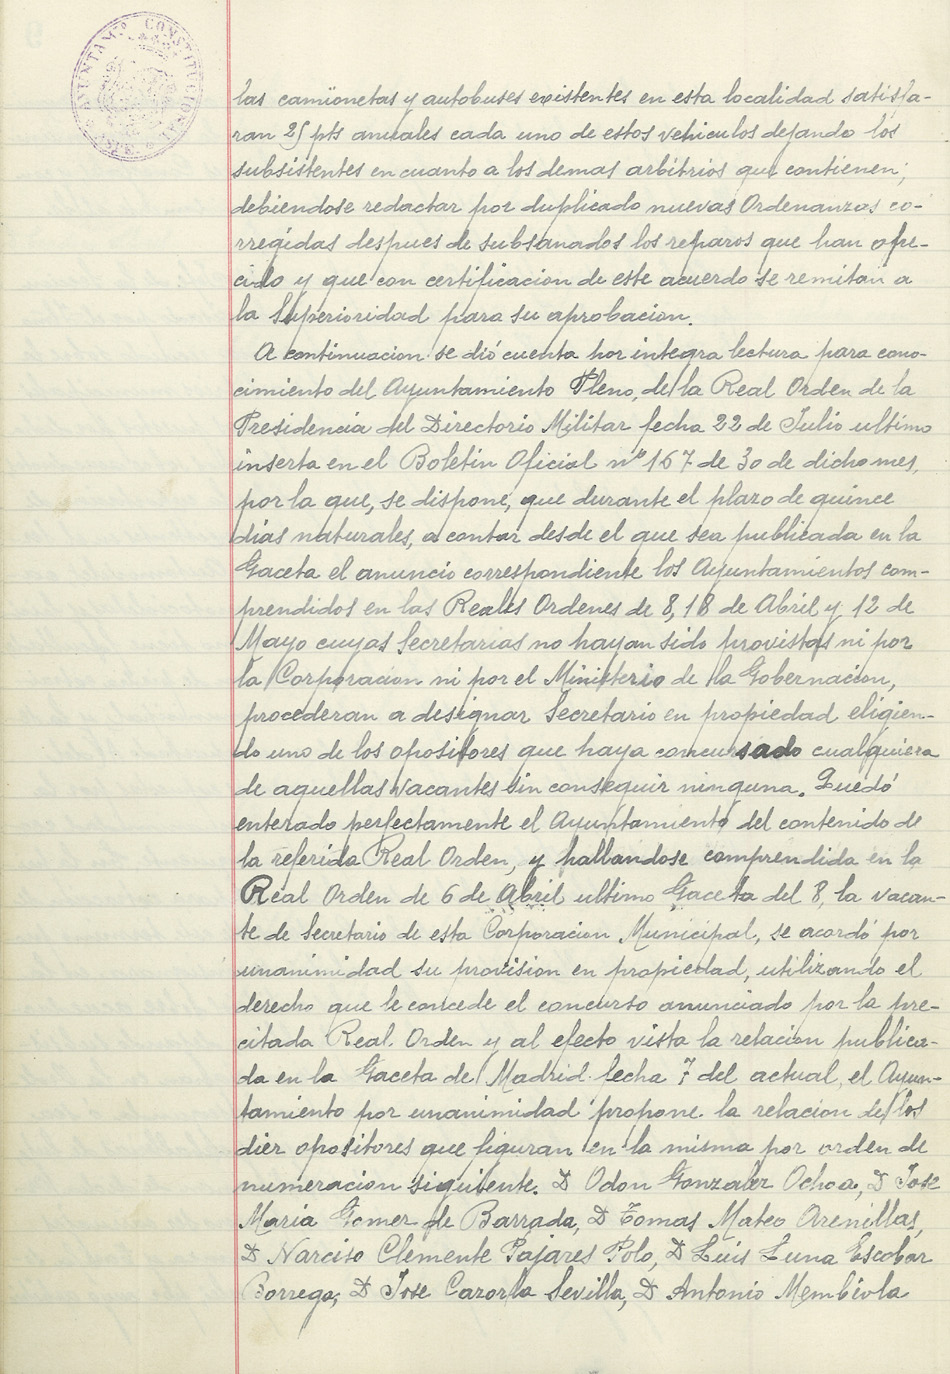 AYUNTAMTO CONSTITUCIONAL
las camionetas y autobuses existentes en esta localidad satisfa-
ran 25 pts anuales cada uno de estos vehiculos dejando los
subsistentes en cuanto a los demas arbitrios que contienen;
debiendose redactar por duplicado nuevas Ordenanzas co-
rregidas despues de subsanados los reparos que han ofre-
cido y que con certificacion de este acuerdo se remitan a
la Superioridad para su aprobacion.
A continuacion se dió cuenta por integra lectura para cono-
cimiento del Ayuntamiento Pleno, de la Real Orden de la
Presidencia del Directorio Militar fecha 22 de Julio ultimo
inserta en el Boletin Oficial nº 167 de 30 de dicho mes,
por la que, se dispone, que durante el plazo de quince
dias naturales, a contar desde el que sea publicada en la
Gaceta el anuncio correspondiente los Ayuntamientos com-
prendidos en las Reales Ordenes de 8, 18 de Abril y 12 de
Mayo cuyas Secretarias no hayan sido provistas ni por
la Corporacion ni por el Ministerio de la Gobernacion,
procederan a designar Secretario en propiedad eligien-
do uno de los opositores que haya concursado cualquiera
de aquellas vacantes sin conseguir ninguna. Quedó
enterado perfectamente el Ayuntamiento del contenido de
la referida Real Orden, y hallandose comprendida en la
Real Orden de 6 de Abril ultimo Gaceta del 8, la vacan-
te de Secretario de esta Corporacion Municipal, se acordó por
unanimidad su provision en propiedad, utilizando el
derecho que le concede el concurso anunciado por la pre-
citada Real Orden y al efecto vista la relacion publica-
da en la Gaceta de Madrid fecha 7 del actual, el Ayun-
tamiento por unanimidad propone la relacion de los
diez opositores que figuran en la misma por orden de
numeracion siguiente. D Odon Gonzalez Ochoa, D Jose
Maria Gomez de Barrada, D Tomas Mateo Arenillas,
D Narciso Clemente Pajares Polo, D Luis Luna Escobar
Borrego, D Jose Cazorla Sevilla, D Antonio Membiela